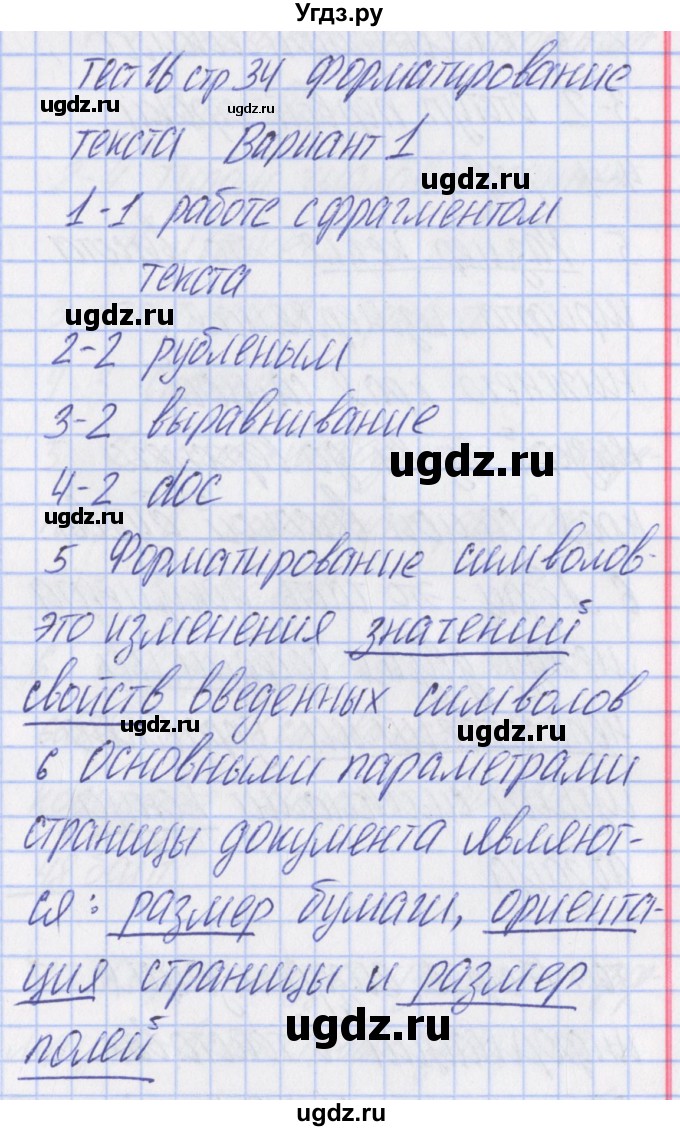 Угдз.ру
Тест 16 стр 34 Форматирование
ugdz.ru
ugdz.ru
текста Вариант 1
ugdz.ru
1-1 работе с фрагментом
текста
ugdz.ru
2-2 рубленым
3-2 выравнивание
ugdz.ru
4-2 doc
ugdz.ru
5 Форматирование символов-
это изменения значений
свойств введенных символов
ugdz.ru
ugdz.ru
6 Основными параметрами
страницы документа являют-
ся: размер бумаги, ориента-
ция страницы и размер
ugdz.ru
полей
ugdz.ru